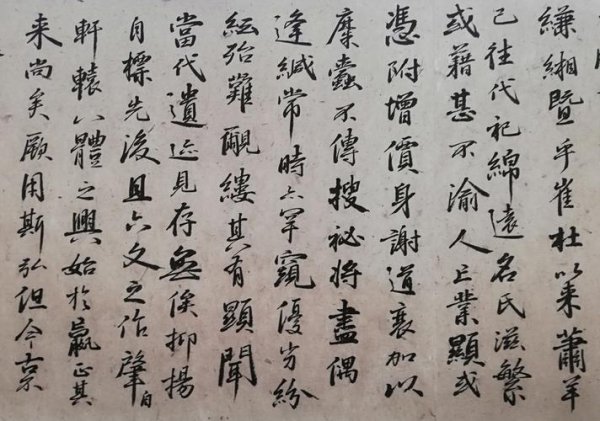 縑緗暨乎崔杜以来蕭羊
已往代祀綿遠名氏滋繁
或藉甚不渝人亡業顯或
憑附增價身謝道衰加以
糜蠹不傳搜祕将盡偶
逢緘賞時亦罕窺優劣紛
紜殆難覼縷其有顯聞
當代遺迹見存無俟抑揚
自標先後且六文之作肇自
軒轅八體之興始於嬴正其
来尚矣厥用斯弘但今古不